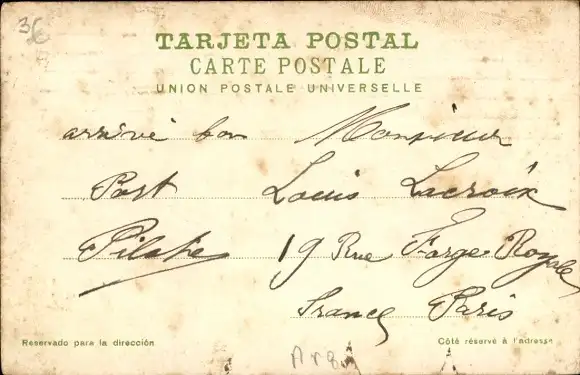 36
TARJETA POSTAL
CARTE POSTALE
UNION POSTALE UNIVERSELLE
arrivé bon Monsieur
Port Louis Lacroix
19 Rue Forge Royale
France Paris
Reservado para la dirección Côté réservé à l'adresse